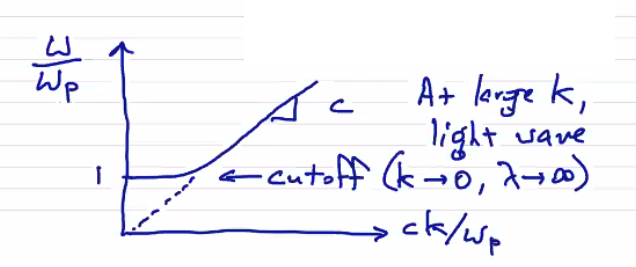 ω/ωp
c
At large k,
light wave
1
← cutoff (k→0, λ→∞)
ck/ωp